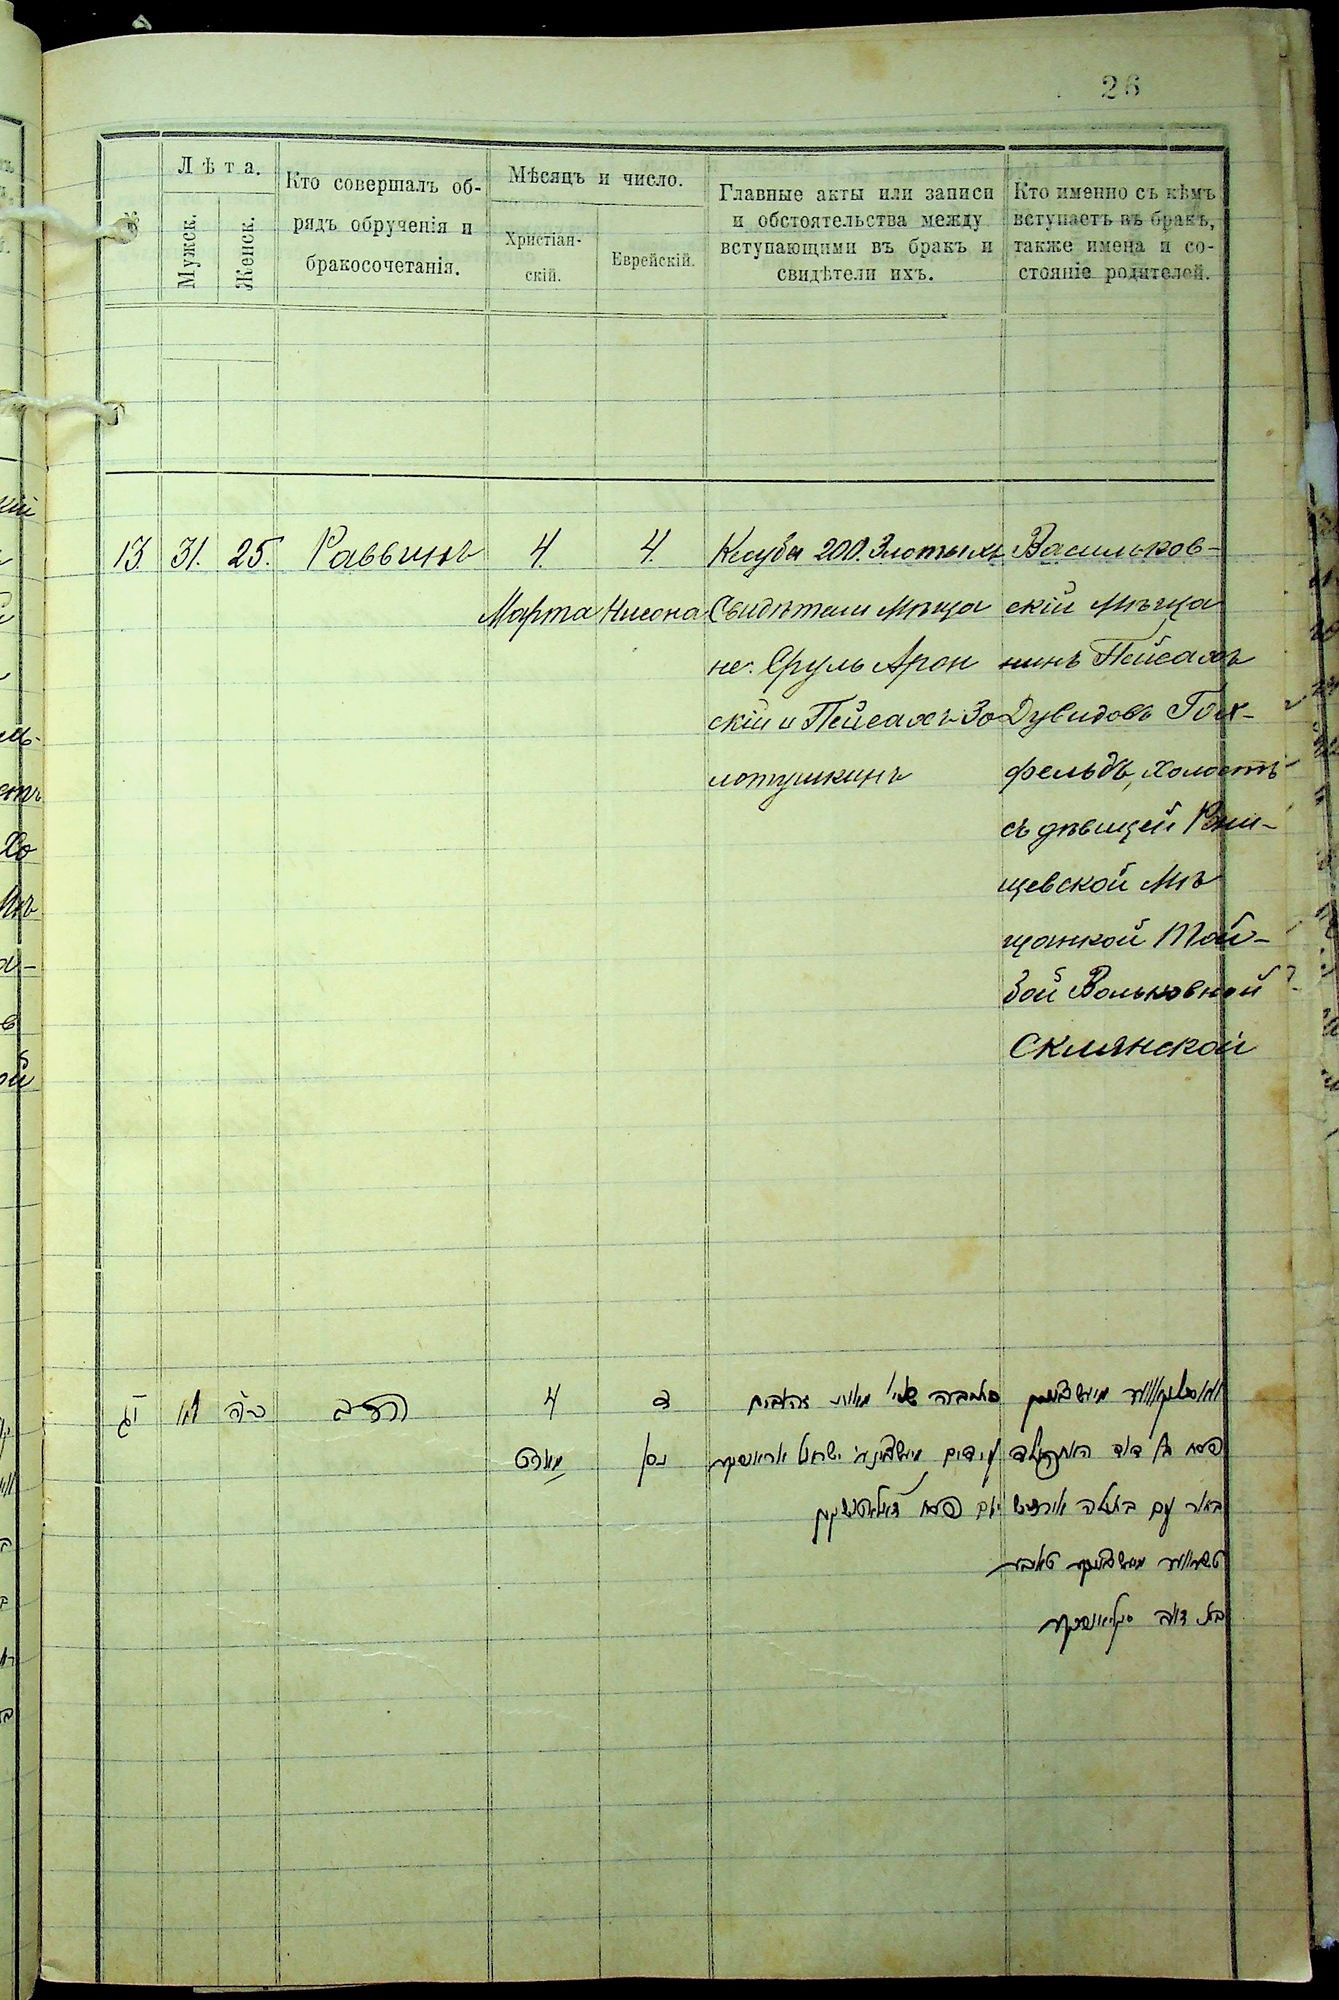 26
№
Лѣта.
Мужск.
Женск.
Кто совершалъ об-
рядъ обрученія и
бракосочетанія.
Мѣсяцъ и число.
Христіан-
скій.
Еврейскій.
Главные акты или записи
и обстоятельства между
вступающими въ бракъ и
свидѣтели ихъ.
Кто именно съ кѣмъ
вступаетъ въ бракъ,
также имена и со-
стояніе родителей.
13. 31. 25. Раввинъ
4.
Марта
4.
Нисона
Ксуба 200. Злотыхъ
Свидѣтели Мѣща
не: Сруль Арон
скій и Пейсахъ Зо
лотушкинъ
Васильков-
скій Мѣща
нинъ Пейсахъ
Дувидовъ Гох-
фельдъ, холостъ
съ дѣвицей Ржи-
щевской Мѣ
щанкой Тай-
бой Вольковной
Склянской
יג לא כ״ה הרב
4
מארט
ד
ניסן
מאות זהובים
עידים ישראל
פסח
פסח בן דוד
בחור עם בתולה
טאבע
בת סקליאנסקי